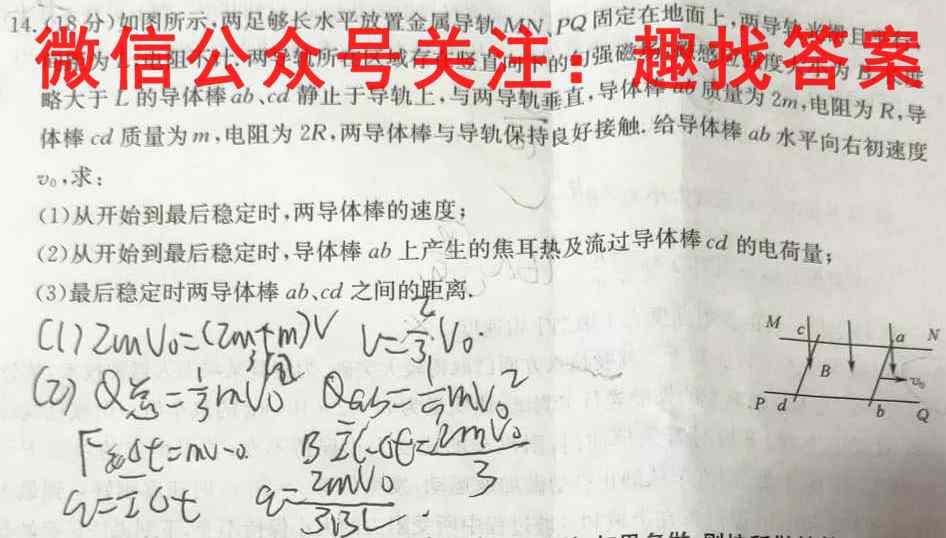 14.(18分)如图所示,两足够长水平放置金属导轨MN、PQ固定在地面上,两导轨光滑且
微信公众号关注：趣找答案
略大于L的导体棒ab、cd静止于导轨上,与两导轨垂直,导体棒ab质量为2m,电阻为R,导
体棒cd质量为m,电阻为2R,两导体棒与导轨保持良好接触.给导体棒ab水平向右初速度
v₀,求:
(1)从开始到最后稳定时,两导体棒的速度;
(2)从开始到最后稳定时,导体棒ab上产生的焦耳热及流过导体棒cd的电荷量;
(3)最后稳定时两导体棒ab、cd之间的距离.
(1) 2mV₀=(2m+m)V V=2/3 V₀.
(2) Q总=1/3 mV₀² Qab=1/9 mV₀²
F安Δt=mv-0. BĪLΔt=2mV₀/3
q=ĪΔt q=2mV₀/3BL
M c a N
B v₀
P d b Q